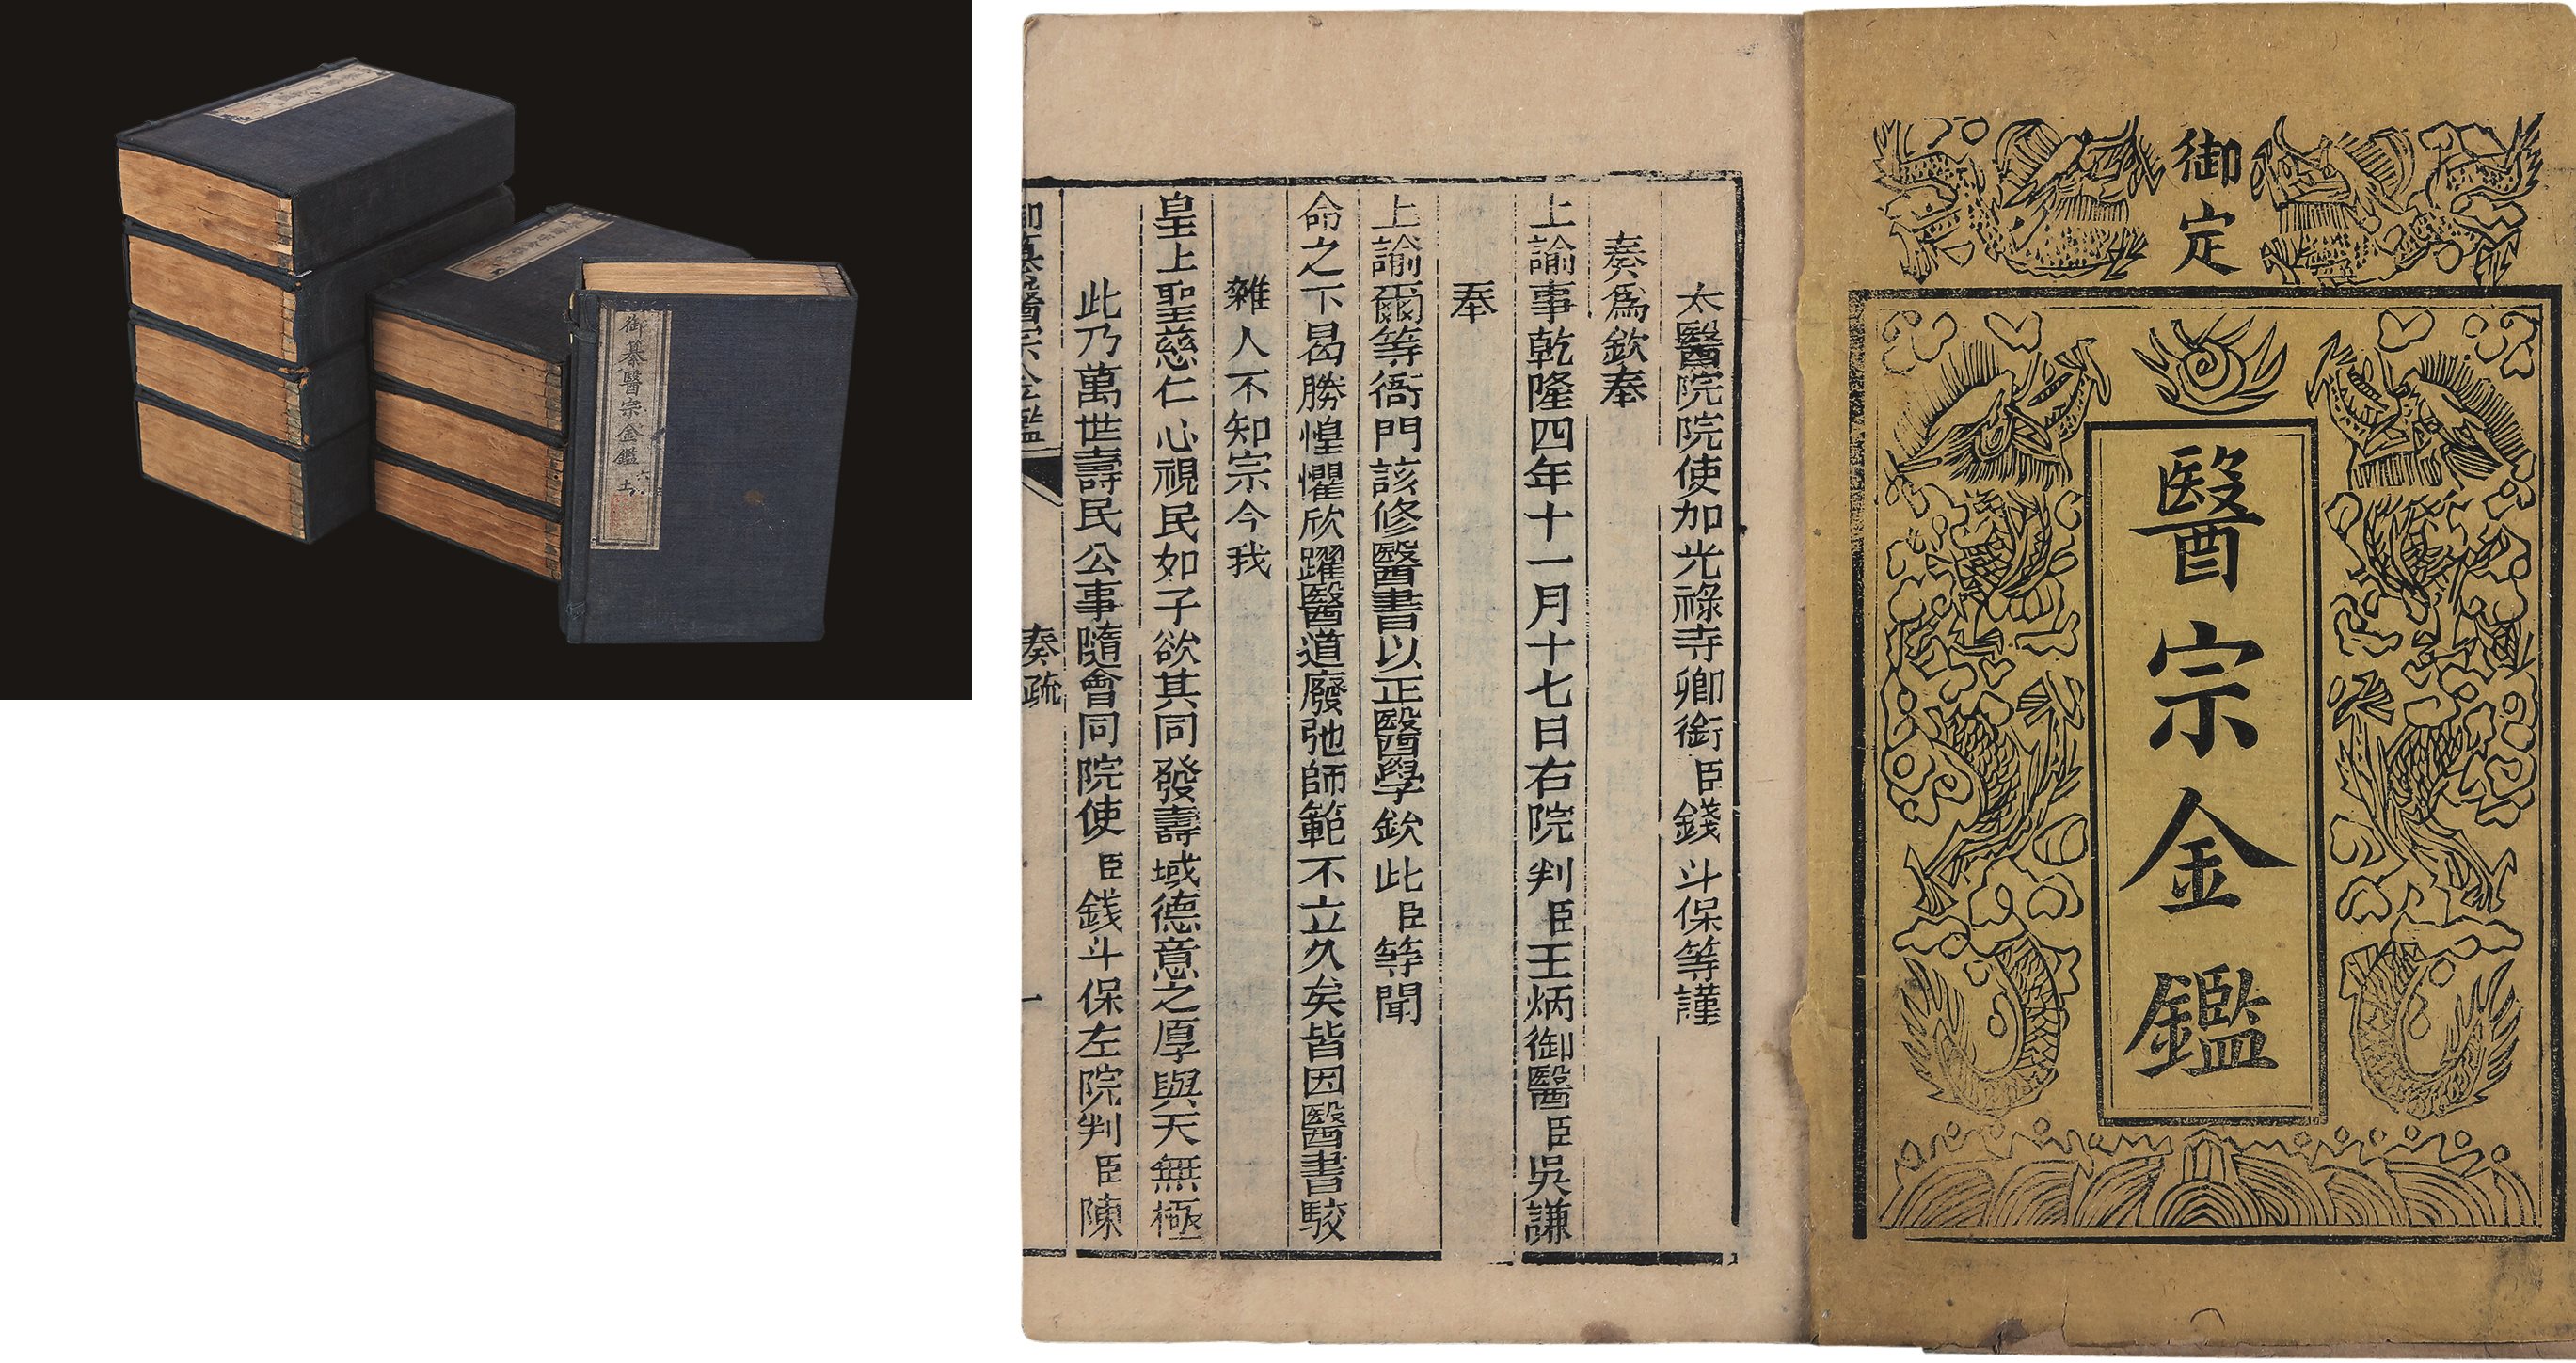 御纂醫宗金鑑
御定
醫宗金鑑
太醫院院使加光祿寺卿銜臣錢斗保等謹
奏爲欽奉
上諭事乾隆四年十一月十七日右院判臣王炳御醫臣吳謙
奉
上諭爾等衙門該修醫書以正醫學欽此臣等聞
命之下曷勝惶懼欣躍醫道廢弛師範不立久矣皆因醫書駁
雜人不知宗今我
皇上聖慈仁心視民如子欲其同發壽域德意之厚與天無極
此乃萬世壽民公事隨會同院使臣錢斗保左院判臣陳
御纂醫宗金鑑 奏疏 一